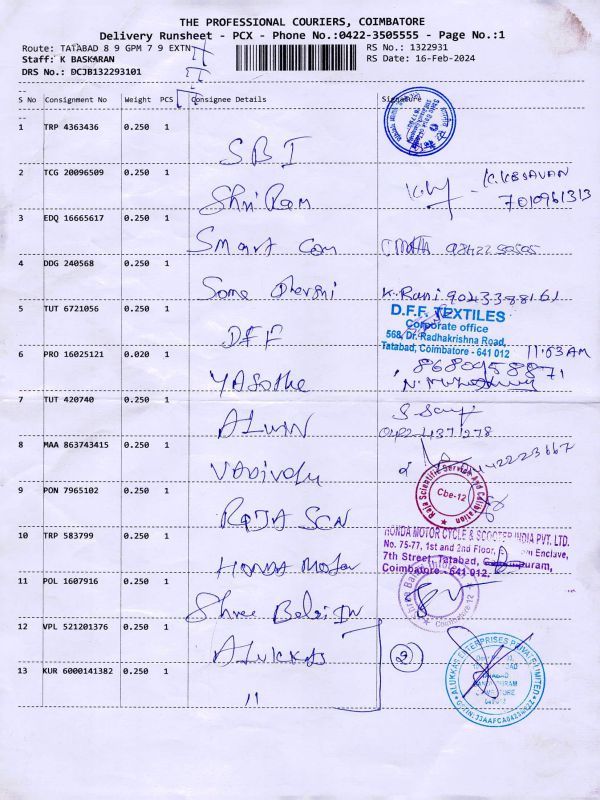 THE PROFESSIONAL COURIERS, COIMBATORE
Delivery Runsheet - PCX - Phone No.:0422-3505555 - Page No.:1
Route: TATABAD 8 9 GPM 7 9 EXTN
RS No.: 1322931
Staff: K BASKARAN
RS Date: 16-Feb-2024
DRS No.: DCJB132293101
S No Consignment No Weight PCS Consignee Details Signature
1 TRP 4363436 0.250 1
SBI
2 TCG 20096509 0.250 1
Shri Ram K.KESAVAN
7010961313
3 EDQ 16665617 0.250 1
Smart Com
4 DDG 240568 0.250 1
Some K.Rani 9043388161
5 TUT 6721056 0.250 1
DFF
D.F.F. TEXTILES
Corporate office
568/ Dr. Radhakrishna Road,
Tatabad, Coimbatore - 641 012
11:53 AM
6 PRO 16025121 0.020 1
8680958871
7 TUT 420740 0.250 1
ALWIN
0422-4371278
8 MAA 863743415 0.250 1
9 PON 7965102 0.250 1
RAJA SCN
Raja Scientific Service And Calibration
Cbe-12
10 TRP 583799 0.250 1
HONDA Motor
HONDA MOTOR CYCLE & SCOOTER INDIA PVT. LTD.
No. 75-77, 1st and 2nd Floor, Enclave,
7th Street, Tatabad,
Coimbatore - 641 012.
11 POL 1607916 0.250 1
Shree
Coimbatore-12
12 VPL 521201376 0.250 1
ALUKKAS
2
13 KUR 6000141382 0.250 1
"
ALUKKAS ENTERPRISES PRIVATE LIMITED